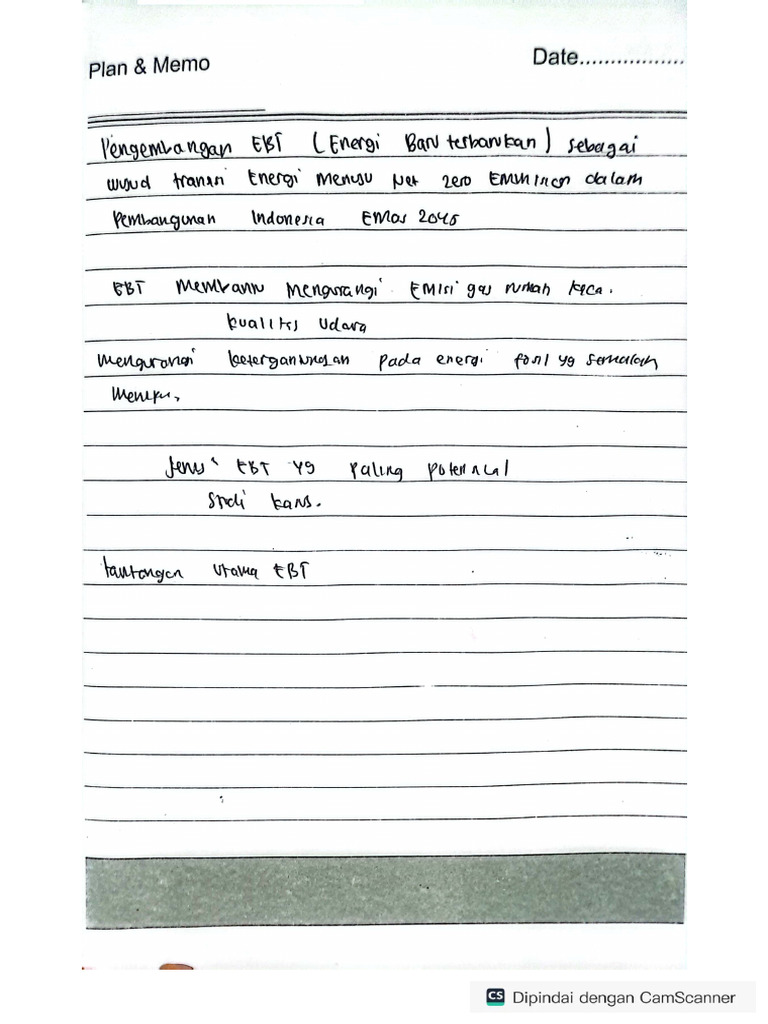 Plan & Memo
Date.................
Pengembangan EBT (Energi Baru terbarukan) sebagai
wujud transisi Energi menuju Net zero Emission dalam
Pembangunan Indonesia Emas 2045
EBT Membantu mengurangi Emisi gas rumah kaca.
kualitas udara
mengurangi ketergantungan pada energi fosil yg semakin
Jenis EBT yg paling potensial
Studi kasus.
tantangan utama EBT
CS Dipindai dengan CamScanner